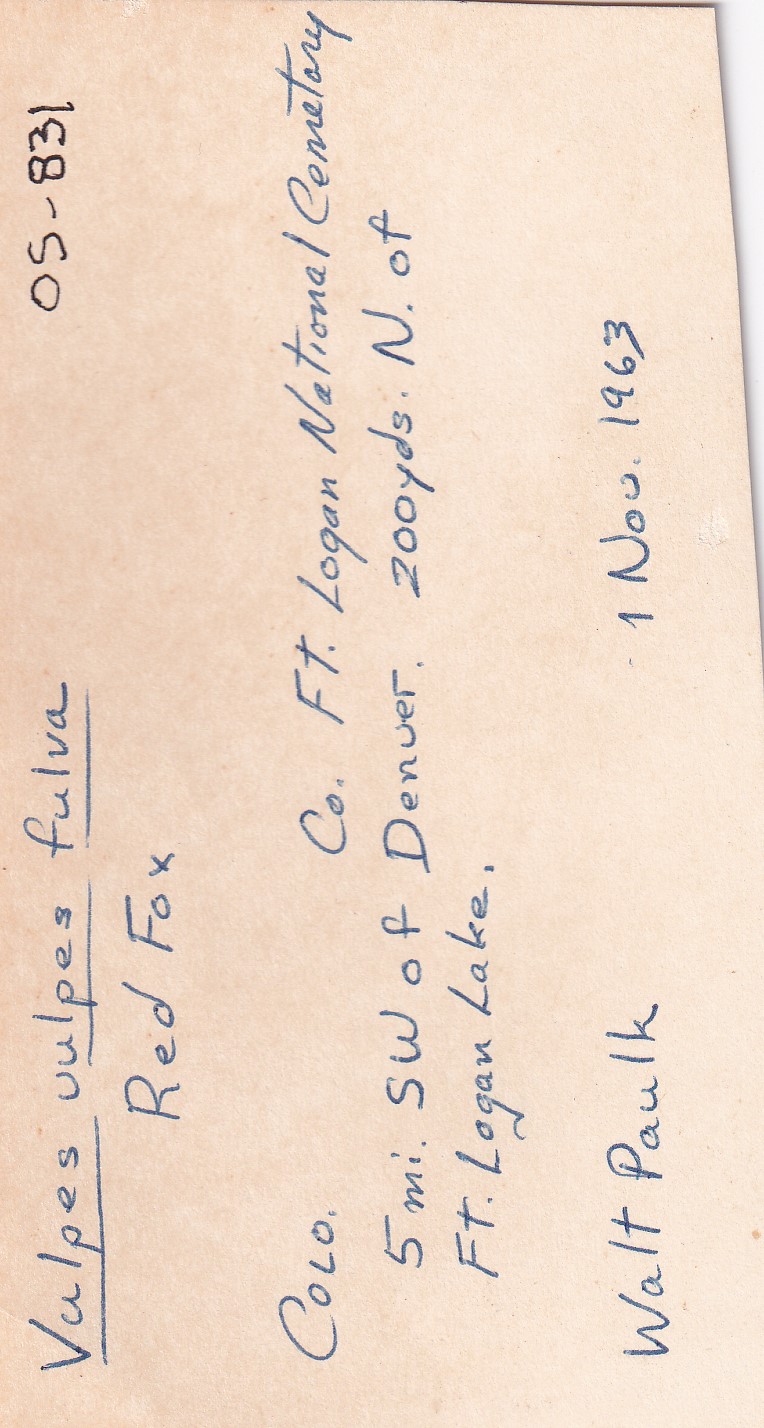 Vulpes vulpes fulva OS-831
Red Fox
COLO. Co. Ft. Logan National Cemetary
5 mi. SW of Denver. 200yds. N. of
Ft. Logan Lake.
Walt Paulk 1 Nov. 1963